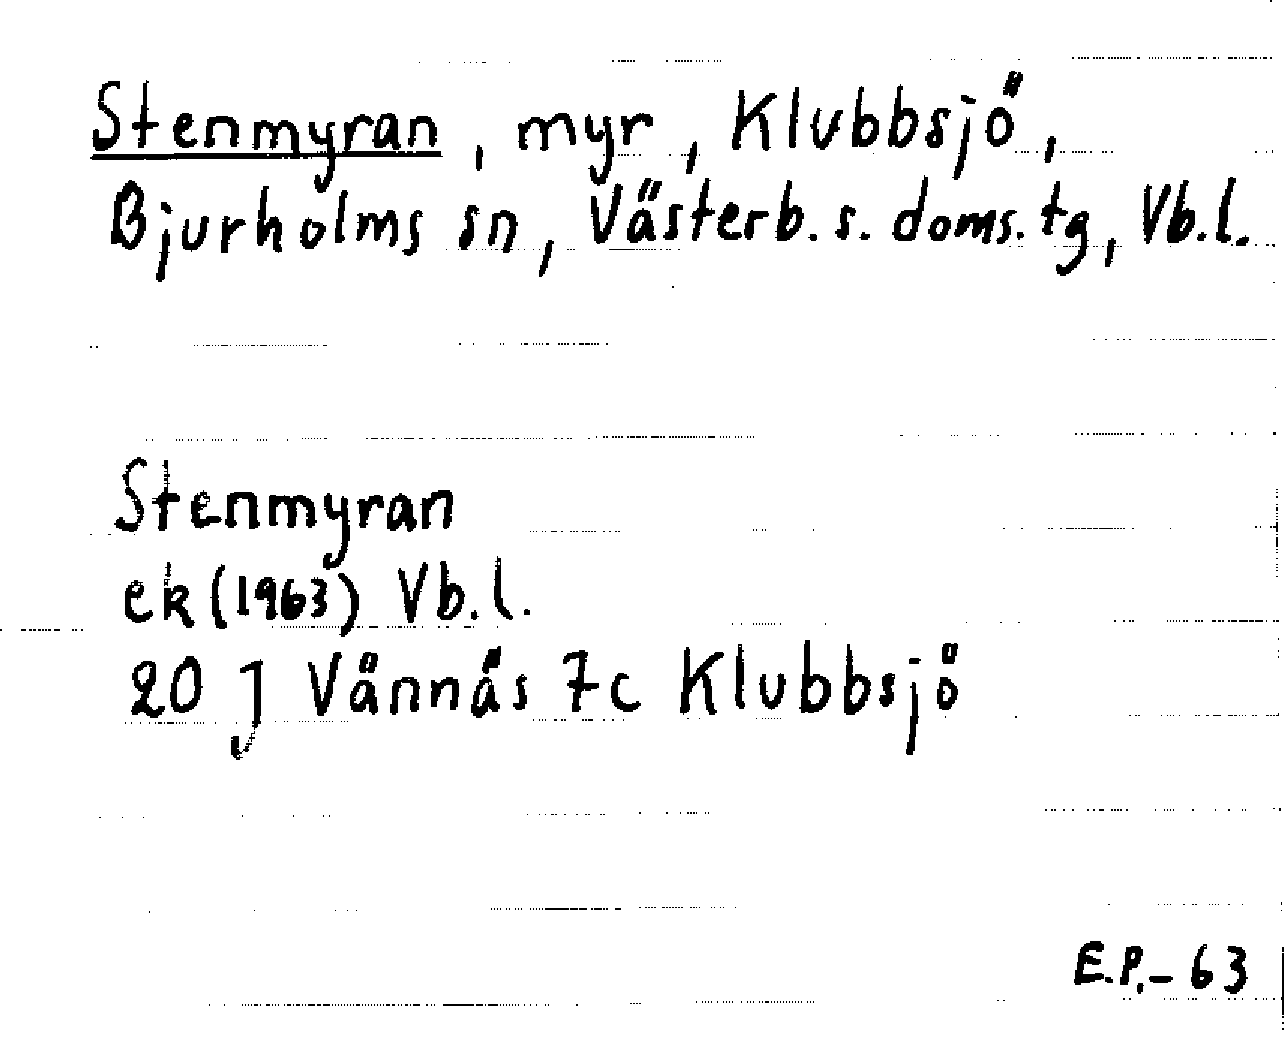 Stenmyran, myr, Klubbsjö,
Bjurholms sn, Västerb. s. doms. tg, Vb.l.
Stenmyran
ek (1963) Vb.l.
20 J Vännäs 7c Klubbsjö
E.P.-63